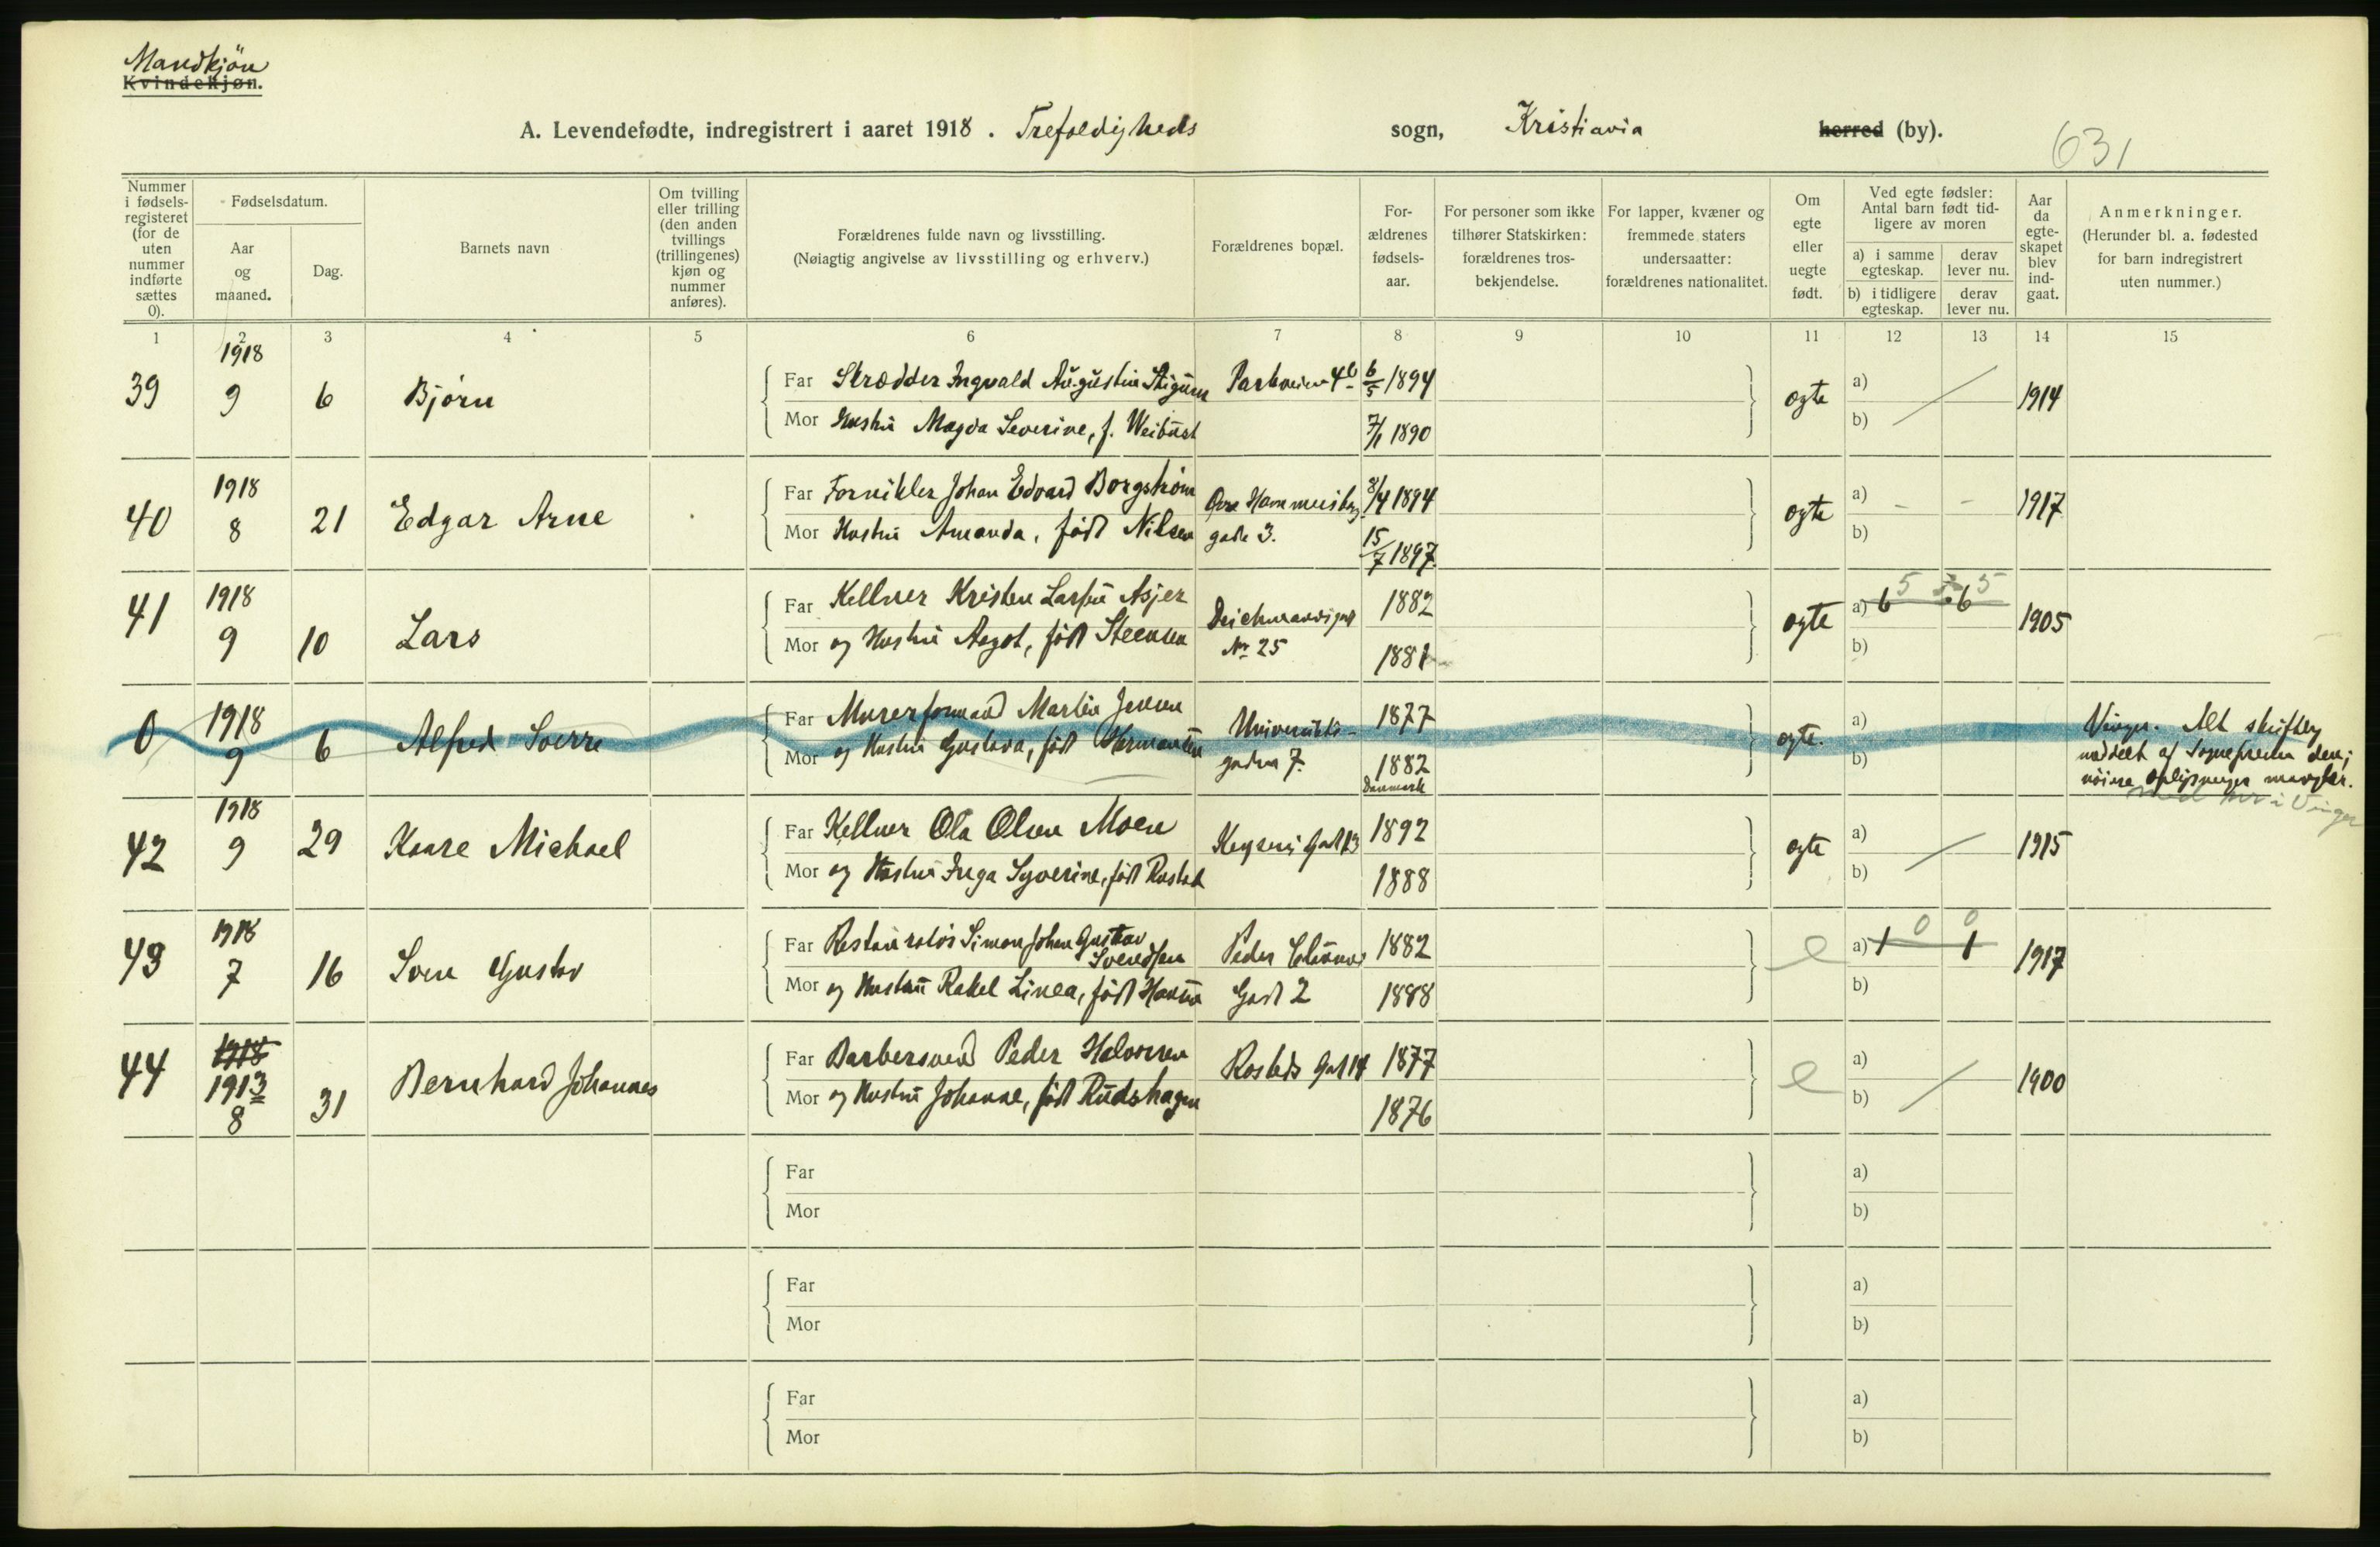 Mandkjön
Kvindekjøn.
A. Levendefødte, indregistrert i aaret 1918. Trefoldigheds sogn, Kristiania herred (by).
631
Nummer i fødsels-registeret (for de uten nummer indførte sættes 0).
Fødselsdatum.
Aar og maaned.
Dag.
Barnets navn
Om tvilling eller trilling (den anden tvillings (trillingenes) kjøn og nummer anføres).
Forældrenes fulde navn og livsstilling.
(Nøiagtig angivelse av livsstilling og erhverv.)
Forældrenes bopæl.
For-ældrenes fødsels-aar.
For personer som ikke tilhører Statskirken: forældrenes tros-bekjendelse.
For lapper, kvæner og fremmede staters undersaatter: forældrenes nationalitet.
Om egte eller uegte født.
Ved egte fødsler: Antal barn født tid-ligere av moren
a) i samme egteskap.
derav lever nu.
b) i tidligere egteskap.
derav lever nu.
Aar da egte-skapet blev ind-gaat.
Anmerkninger.
(Herunder bl. a. fødested for barn indregistrert uten nummer.)
1 2 3 4 5 6 7 8 9 10 11 12 13 14 15
39 1918 9 6 Bjørn
Far Skrædder Ingvald Augustin Parkveien 6/5 1894 egte a) 1914
Mor Hustru Magda Severine, f. 7/1 1890 b)
40 1918 8 21 Edgar Arne
Far Fornikler Johan Edvard Borgstrøm 8/4 1894 egte a) - - 1917
Mor Hustru Amanda, født Nilsen gade 3. 15/7 1897 b)
41 1918 9 10 Lars
Far Kellner Kristen Asjer 1882 egte a) 6 5 6 5 1905
Mor og Hustru Aagot, født Steensen No 25 1881 b)
0 1918 9 6 Alfred Sverre
Far Murerformand Martin Jensen Universitets- 1877 egte. a) Vinger. Alt skriftlig
Mor og Hustru Gustava, født gaden 7. 1882 b) meddelt af Sognepresten der;
Danmark nöiere oplysninger mangler.
i Vinger
42 1918 9 29 Kaare Michael
Far Kellner Ola Olsen Moen Keysers Gad 13 1892 egte a) 1915
Mor og Hustru Inga Syverine, født Rustad 1888 b)
43 1918 7 16 Sven Gustav
Far Restauratör Simon Johan Gustav Svendsen Peder 1882 e a) 1 0 1 0 1917
Mor og Hustru Rakel Linea, født Gad 2 1888 b)
44 1918 1913 8 31 Bernhard Johannes
Far Barbersvend Peder Halvorsen Rosteds Gad 14 1877 e a) 1900
Mor og Hustru Johanne, født Rudshagen 1876 b)
Far a)
Mor b)
Far a)
Mor b)
Far a)
Mor b)